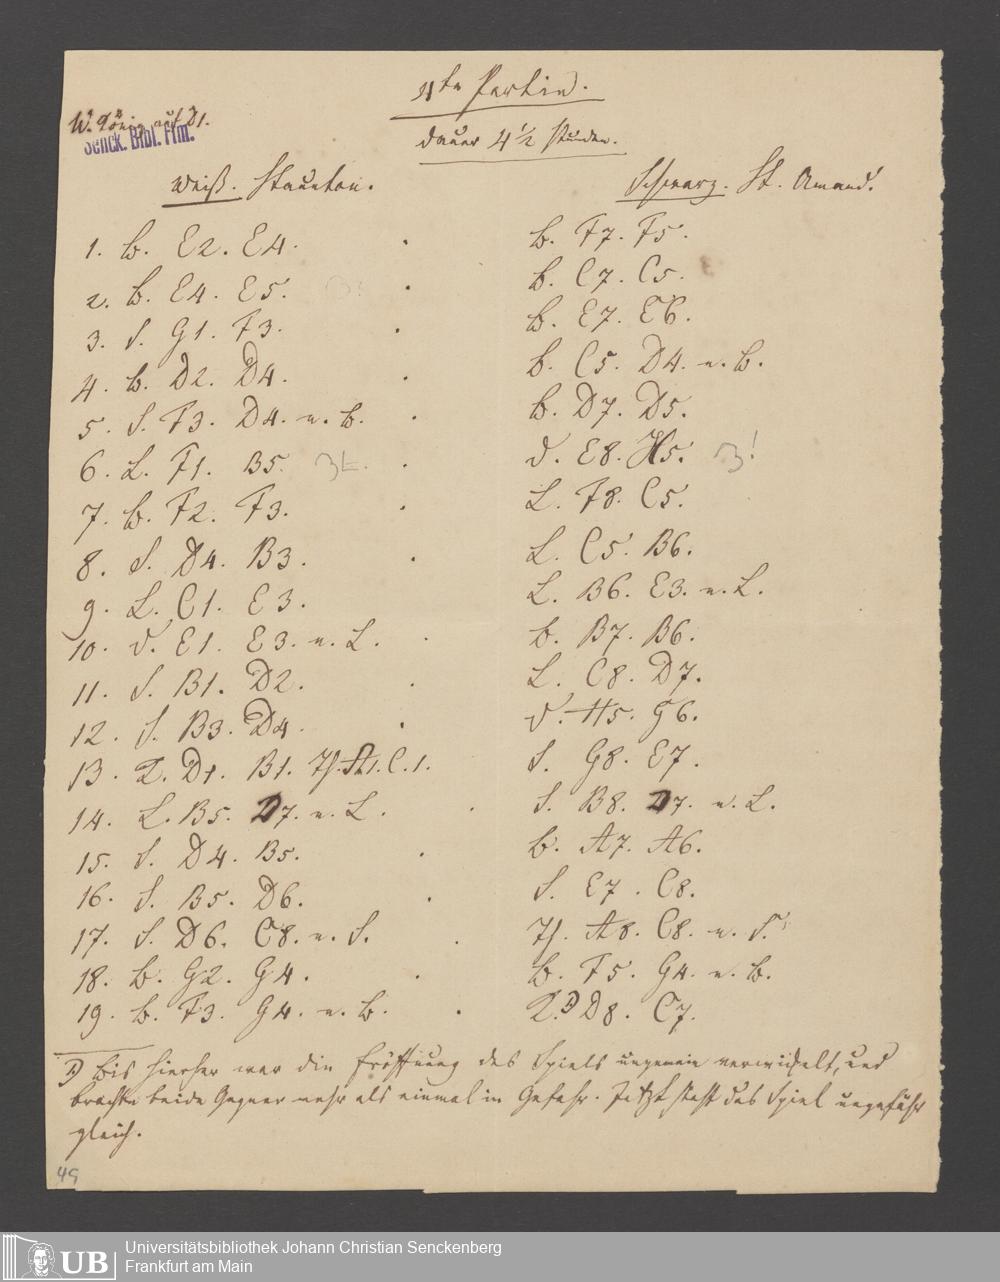 4te Partie.
W. König auf D1.
Senck. Bibl. Ffm.
dauer 4 1/2 Stunden.
Weiß. Staunton. Schwarz. St. Amand.
1. b. E2. E4. b. F7. F5.
2. b. E4. E5. b. C7. C5.
3. S. G1. F3. b. E7. E6.
4. b. D2. D4. b. C5. D4. n. b.
5. S. F3. D4. n. b. b. D7. D5.
6. L. F1. B5. D. E8. H5.
7. b. F2. F3. L. F8. C5.
8. S. D4. B3. L. C5. B6.
9. L. C1. E3. L. B6. E3. n. L.
10. D. E1. E3. n. L. b. B7. B6.
11. S. B1. D2. L. C8. D7.
12. S. B3. D4. D. H5. G6.
13. K. D1. B1. Th. A1. C.1. S. G8. E7.
14. L. B5. D7. n. L. S. B8. D7. n. L.
15. S. D4. B5. b. A7. A6.
16. S. B5. D6. S. E7. C8.
17. S. D6. C8. n. S. Th. A8. C8. n. S.
18. b. G2. G4. b. F5. G4. n. b.
19. b. F3. G4. n. b. K. D8. C7.
bis hierher war die Eröffnung des Spiels ungemein verwickelt, und
brachte beide Gegner mehr als einmal in Gefahr. Jetzt steht das Spiel ungefähr
gleich.
49
UB
Universitätsbibliothek Johann Christian Senckenberg
Frankfurt am Main